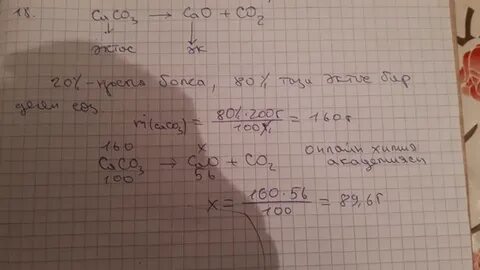 18. CaCO₃ → CaO + CO₂
↓ ↓
әктас әк
20% - қоспа болса, 80% таза әктас бар
деген сөз
m(CaCO₃) = 80% · 200г / 100% = 160г
160 x
CaCO₃ → CaO + CO₂ онлайн химия
100 56 академиясы
x = 160 · 56 / 100 = 89,6г